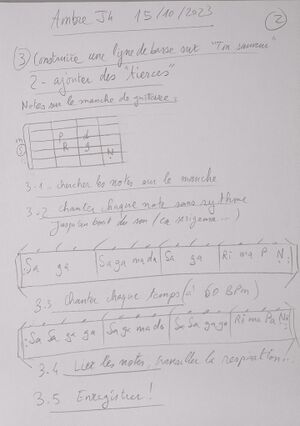 Ambre J4 15/10/2023
2
3) Construire une ligne de basse sur "Ton sauveur"
2 - ajouter des "tierces"
Notes sur le manche de guitare :
P d
R g
N
3.1 - chercher les notes sur le manche
3-2 chanter chaque note sans rythme
jusqu'au bout du son (ça serigama...)
Sa ga Sa ga ma dо Sa ga Ri ma P N
3.3 Chanter chaque temps (à 60 BPM)
Sa Sa ga ga Sa ga ma do Sa Sa ga ga Ri ma Pa Na
3.4 Lier les notes, travailler la respiration...
3.5 Enregistrer !